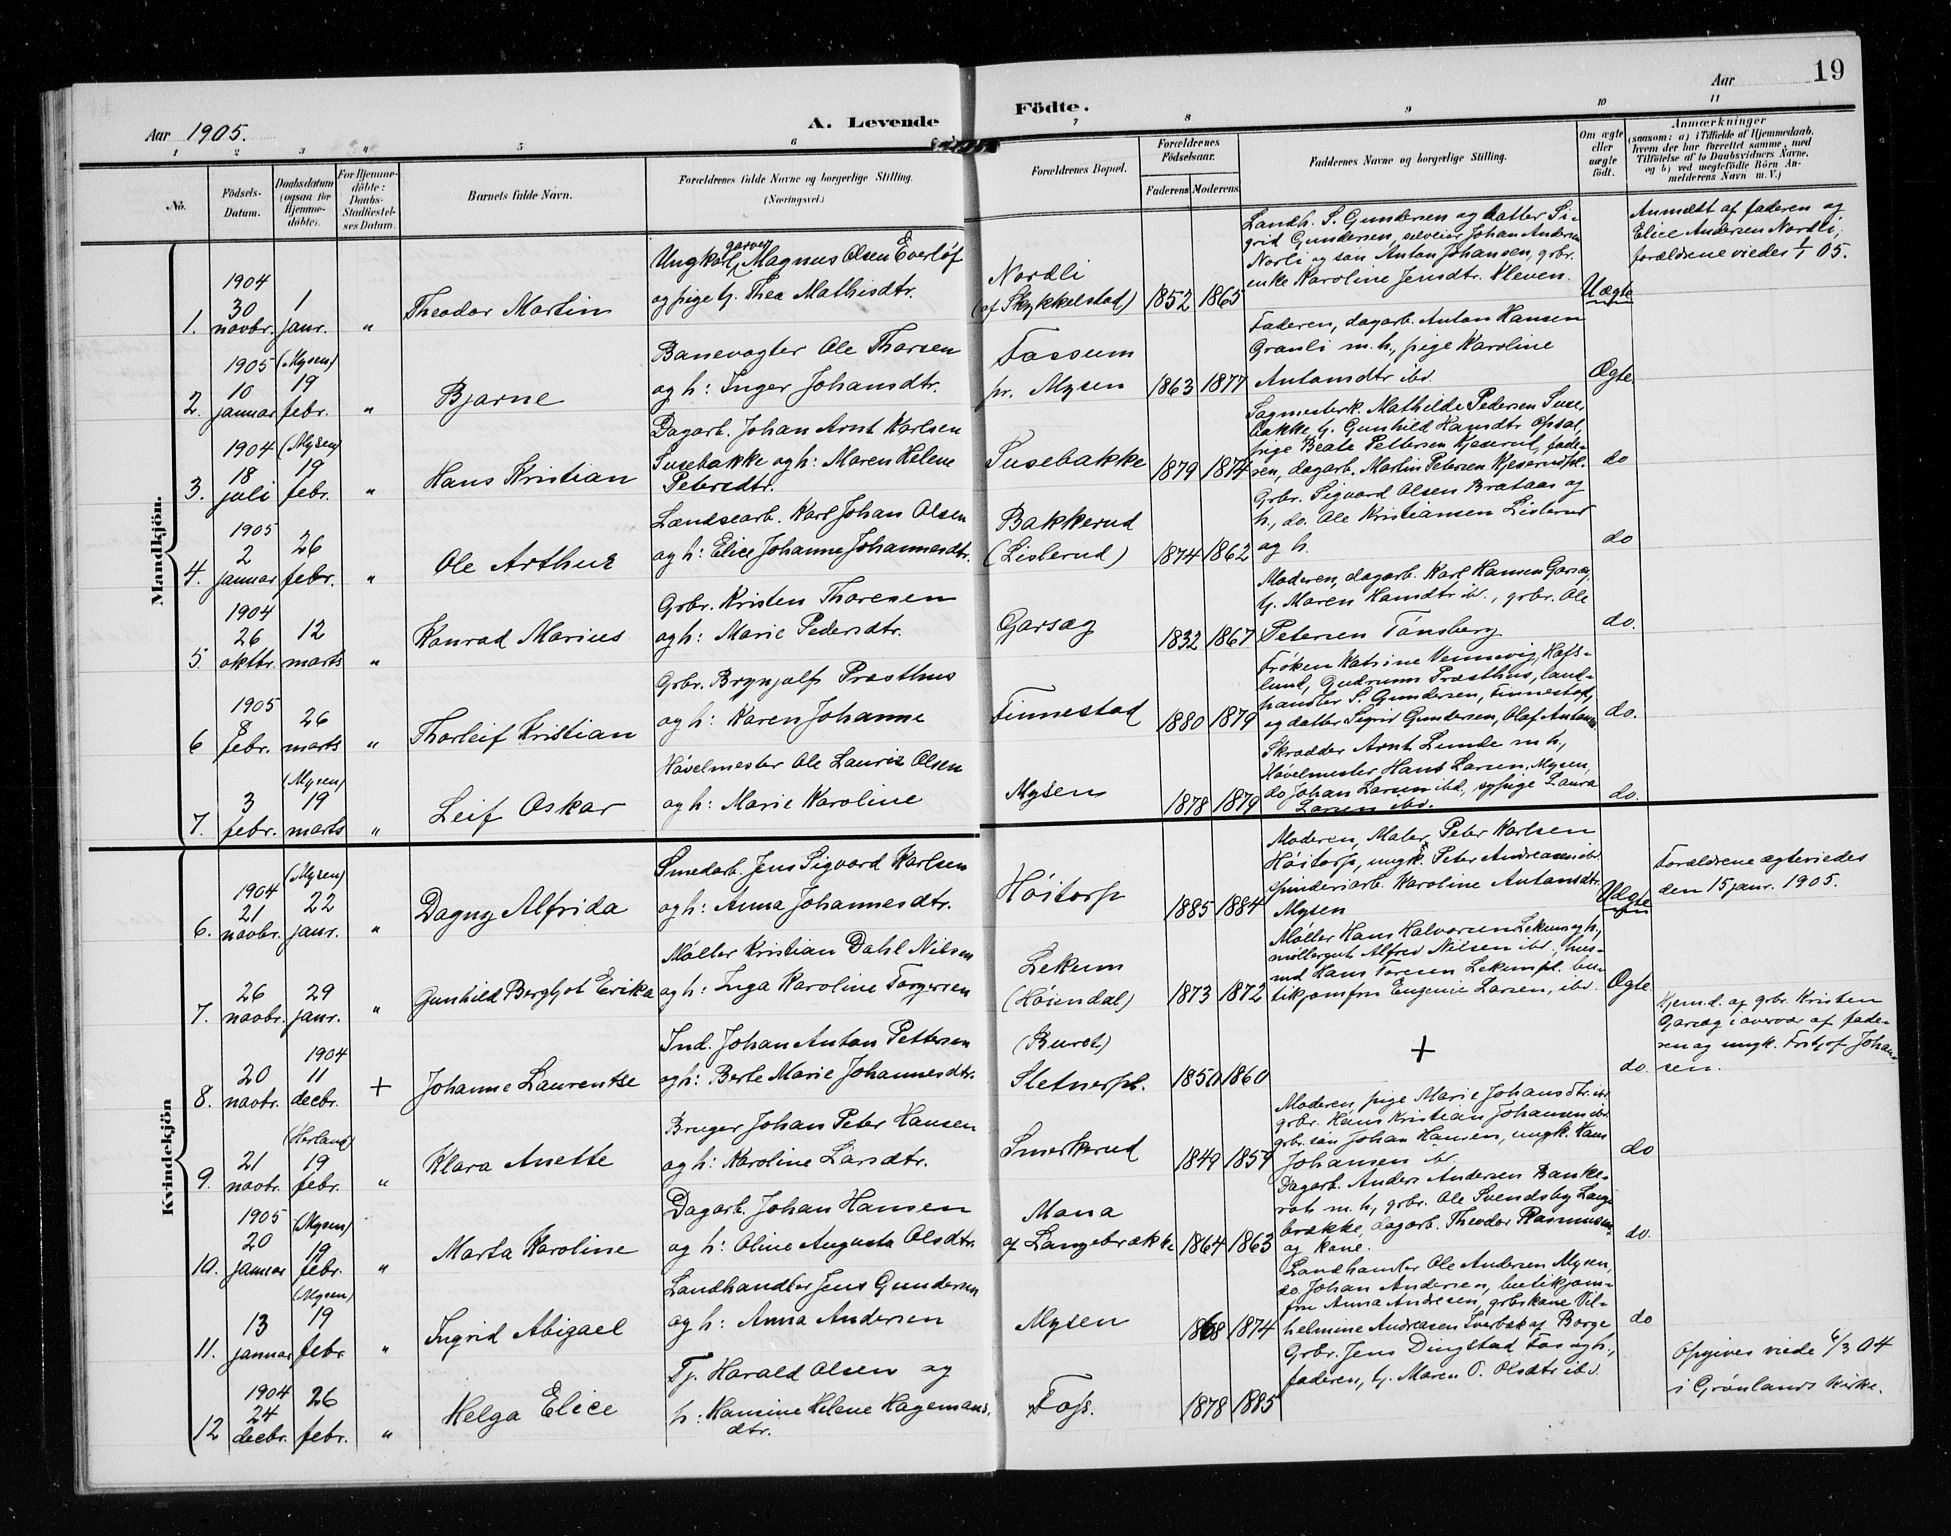 19
Aar 1905.
A. Levende Födte.
Aar
1 2 3 4 5 6 7 8 9 10 11
No.
Födsels-
Datum.
Daabsdatum
(ogsaa for
Hjemme-
döbte).
For Hjemme-
döbte:
Daabs-
Stadfæstel-
ses Datum.
Barnets fulde Navn.
Forældrenes fulde Navne og borgerlige Stilling.
(Næringsvei.)
Forældrenes Bopæl.
Forældrenes
Födselsaar.
Faderens Moderens
Faddernes Navne og borgerlige Stilling.
Om ægte
eller
uægte
födt.
Anmærkninger
(saasom: a) i Tilfælde af Hjemmedaab,
hvem der har forrettet samme, med
Tilföielse af to Daabsvidners Navne,
og b) ved uægtefödte Börn An-
melderens Navn m. V.)
Mandkjön.
1.
1904
30
novbr.
1
janr.
"
Theodor Martin
Ungkarl, garver Magnus Olsen Everløf
og pige tj. Thea Mathisdtr.
Nordli
(af Skykkelstad)
1852 1865
Landh. S. Gundersen og datter Si-
grid Gundersen, selveier Johan Andersen
Norli og søn Anton Johansen, grbr.
enke Karoline Jensdtr. Kleven.
Uægte
Anmeldt af faderen og
Elice Andersen Nordli,
forældrene viedes 1/1 05.
2.
1905
10
januar
(Mysen)
19
febr.
"
Bjarne
Banevogter Ole Thorsen
og h: Inger Johansdtr.
Fossum
pr. Mysen
1863 1877
Faderen, dagarb. Anton Hansen
Granli m. h., pige Karoline
Antonsdtr ibd.
Ægte
3.
1904
18
juli
(Mysen)
19
febr.
"
Hans Kristian
Dagarb. Johan Arnt Karlsen
Susebakke og h: Maren Helene
Petersdtr.
Susebakke
1879 1874
Sagmesterk. Mathilde Pedersen Suse-
bakke, tj. Gunhild Hansdtr Opsal,
pige Beate Pettersen Kjeserud, fade-
ren, dagarb. Martin Petersen Kjeserudpl.
do
4.
1905
2
januar
26
febr.
"
Ole Arthur
Lændsearb. Karl Johan Olsen
og h: Elice Johanne Johannesdtr.
Bakkerud
(Lislerud)
1874 1862
Grbr. Sigvard Olsen Brataas og
h., do. Ole Kristiansen Lislerud
og h.
do
5
1904
26
oktbr.
12
marts
"
Konrad Marius
Grbr. Kristen Thoresen
og h: Marie Pedersdtr.
Garsæg
1832 1867
Moderen, dagarb. Karl Hansen Garsæg,
tj. Maren Hansdtr ib., grbr. Ole
Petersen Tønsberg
do.
6
1905
8
febr.
26
marts
"
Thorleif Kristian
Grbr. Brynjulf Præsthus
og h: Karen Johanne
Finnestad
1880 1879
Frøken Katrine Vennevig, Hafs-
lund, Gudrunn Præsthus, land-
handler S. Gundersen, Finnestad,
og datter Sigrid Gundersen, Olaf Antonsen
do.
7.
3
febr.
(Mysen)
19
marts
"
Leif Oskar
Høvelmester Ole Lauriz Olsen
og h: Marie Karoline
Mysen
1878 1879
Skrædder Arnt Lunde m. h.,
Høvelmester Hans Larsen, Mysen,
do Johan Larsen ibd, sypige Laura
Larsen ibd.
do.
Kvindekjön
6.
1904
21
novbr.
(Mysen)
22
janr.
"
Dagny Alfrida
Smedarb. Jens Sigvard Karlsen
og h: Anna Johannesdtr.
Høitorp
1885 1884
Moderen, Maler Peter Karlsen
Høitorp, ungk. Peter Andreasen ibd.
spinderiarb. Karoline Antonsdtr.
Mysen
Uægte
Forældrene ægteviedes
den 15 janr. 1905.
7.
26
novbr.
29
janr.
"
Gunhild Bergljot Erika
Møller Kristian Dahl Nilsen
og h: Inga Karoline Torgersen
Lekum
(Høiendal)
1873 1872
Møller Hans Halvorsen Lekum og h.,
møllergut Alfred Nilsen ibd, hus-
md Hans Toresen Lekumpl. bu-
tikjomfru Eugenie Larsen, ibd.
Ægte
8.
20
novbr.
1904
11
decbr.
+
Johanne Laurentse
Ind. Johan Anton Pettersen
og h: Berte Marie Johannesdtr.
(Buret)
Sletnerpl.
1850 1860
+
do
Hjemd. af grbr. Kristen
Garsæg i overvær af fade-
ren og ungk. Fritjof Johan-
sen.
9.
21
novbr.
(Herland)
19
febr.
"
Klara Anette
Bruger Johan Peter Hansen
og h: Karoline Larsdtr.
Smerkerud
1849 1859
Moderen, pige Marie Johansdtr. ibd
grbr. Hans Kristian Johansen ibd
grbr. søn Johan Hansen, ungk. Hans
Johansen ibd.
do
10.
1905
20
januar
(Mysen)
19
febr.
"
Marta Karoline
Dagarb. Johan Hansen
og h: Oline Augusta Olsdtr.
Mona
af Langebrække
1864 1863
Dagarb. Anders Andersen Banke-
rah m. h., grbr. Ole Svendsby Lange-
brække, dagarb. Theodor Rasmussen
og kone.
do.
11.
13
januar
(Mysen)
19
febr.
"
Ingrid Abigael
Landhandler Jens Gundersen
og h: Anna Andersen
Mysen
1868 1874
Landhandler Ole Andersen Mysen,
do. Johan Andersen, butikjom-
fru Anna Andresen, grbrkone Vil-
helmine Andreasen Sverbæk af Borge
do
12
1904
24
decbr.
26
febr.
"
Helga Elice
Tj. Harald Olsen og
h: Hansine Helene Hagemans-
dtr.
Fos.
1878 1885
Grbr. Jens Dingstad Fos og h.,
faderen, tj. Maren O. Olsdtr ibd.
Opgives viede 6/3 04
i Grønlands kirke.